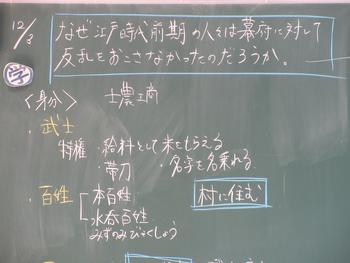 12/3
なぜ江戸時代前期の人々は幕府に対して
反乱をおこさなかったのだろうか。
学
〈身分〉 士農工商
・武士
特権・給料として米をもらえる
・帯刀 ・名字を名乗れる
・百姓 本百姓 村に住む
水呑百姓
みずのみびゃくしょう